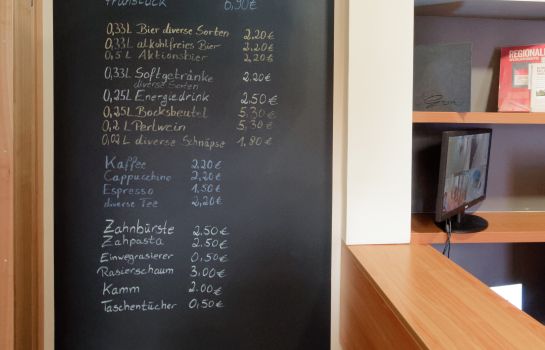 Frühstück 6,90€
0,33L Bier diverse Sorten 2.20€
0,33L alkoholfreies Bier 2.20€
0,5L Aktionsbier 2,20€
0,33L Softgetränke 2.20€
diverse Sorten
0,25L Energiedrink 2,50€
0,25L Bocksbeutel 5,30€
0,2L Perlwein 5,30€
0,02L diverse Schnäpse 1,80€
Kaffee 2,20€
Cappucchino 2,20€
Espresso 1,50€
diverse Tee 2,20€
Zahnbürste 2,50€
Zahpasta 2.50€
Einwegrasierer 0,50€
Rasierschaum 3,00€
Kamm 2.00€
Taschentücher 0,50€
REGIONAL